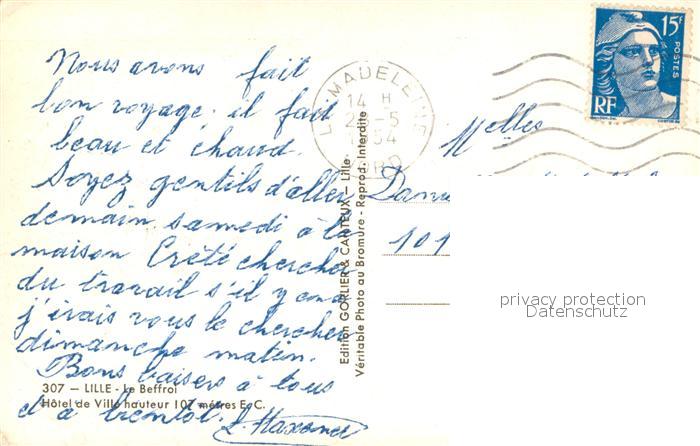 Nous avons fait
bon voyage. il fait
beau et chaud.
Soyez gentils d'aller
demain samedi à la
maison Crété chercher
du travail s'il y en a
j'irais vous le chercher
dimanche matin.
Bons baisers à tous
et à bientôt.
307 — LILLE - Le Beffroi
Hôtel de Ville hauteur 107 mètres E. C.
Edition GORLIER & CAUTEUX — Lille
Véritable Photo au Bromure - Reprod. Interdite
LA MADELEINE
14 H
NORD
15F
POSTES
RF
Melles
101
privacy protection
Datenschutz